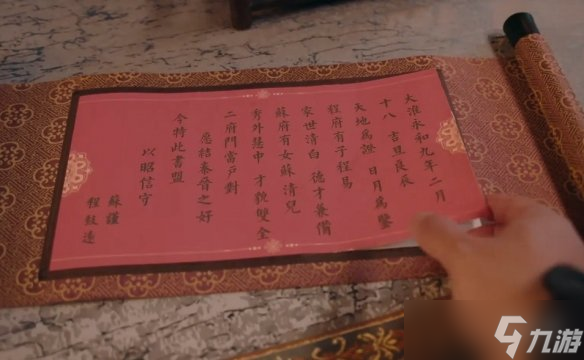 大淮永和九年二月
十八 吉旦良辰
天地為證 日月為鑒
程府有子程易
家世清白 德才兼備
蘇府有女蘇清兒
秀外慧中 才貌雙全
二府門當戶對
愿結秦晉之好
今特此書盟
以昭信守
蘇謹
程致遠
九游